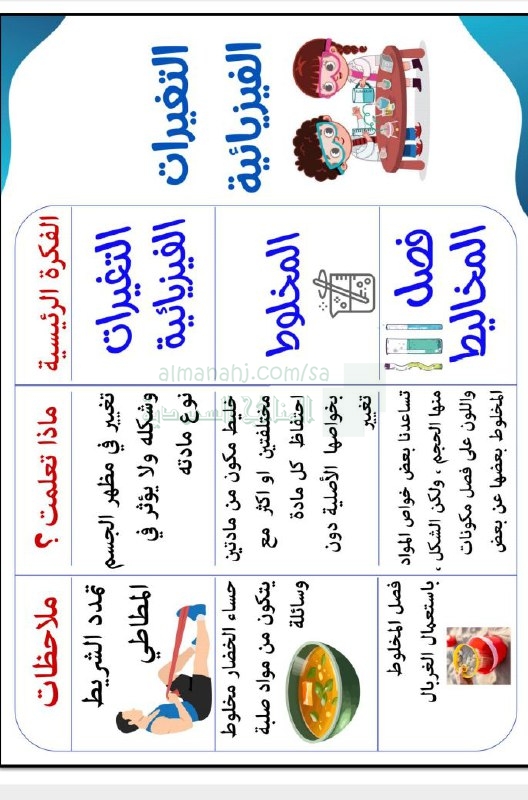 التغيرات
الفيزيائية
الفكرة الرئيسية
ماذا تعلمت ؟
ملاحظات
التغيرات
الفيزيائية
تغيير في مظهر الجسم
وشكله ولا يؤثر في
نوع مادته
تمدد الشريط
المطاطي
المخلوط
خليط مكون من مادتين
مختلفتين او اكثر مع
احتفاظ كل مادة
بخواصها الأصلية دون
تغيير
حساء الخضار مخلوط
يتكون من مواد صلبة
وسائلة
فصل
المخاليط
تساعدنا بعض خواص المواد
منها الحجم ، ولكن الشكل ،
واللون على فصل مكونات
المخلوط بعضها عن بعض
فصل المخلوط
باستعمال الغربال
almanahj.com/sa